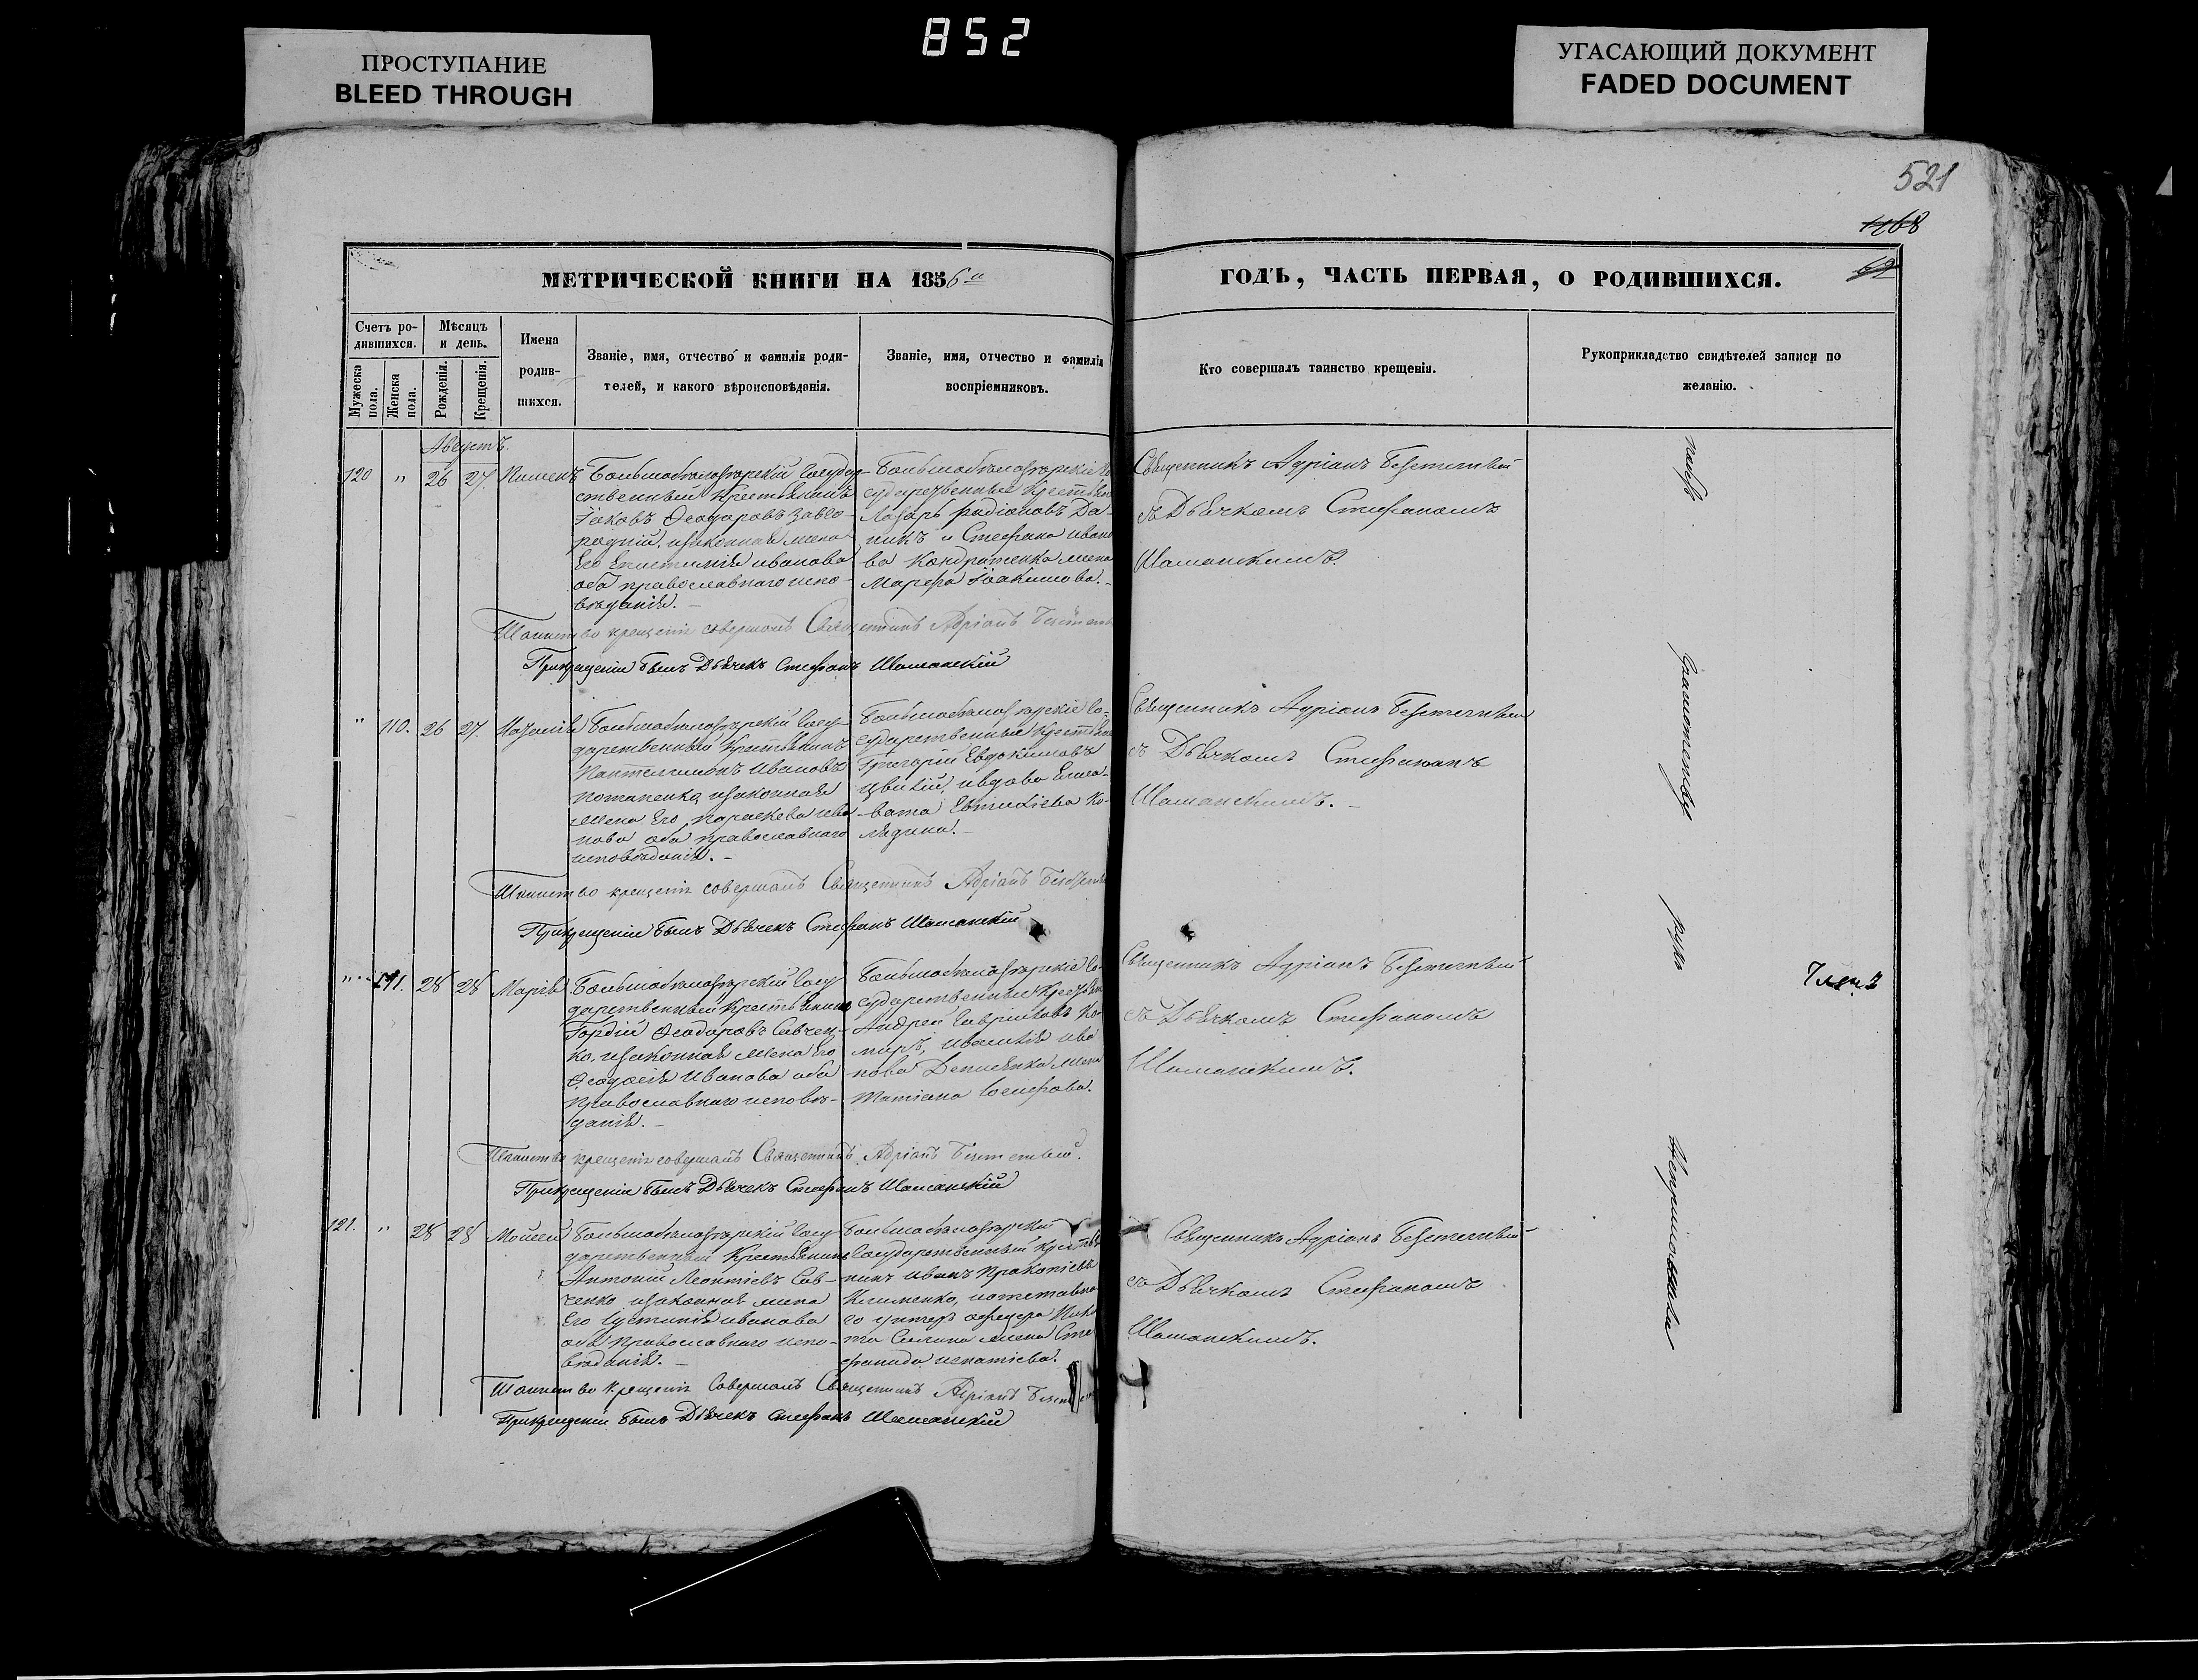 852
ПРОСТУПАНИЕ
BLEED THROUGH
УГАСАЮЩИЙ ДОКУМЕНТ
FADED DOCUMENT
521
1168
62
МЕТРИЧЕСКОЙ КНИГИ НА 1856й
ГОДЪ, ЧАСТЬ ПЕРВАЯ, О РОДИВШИХСЯ.
Счетъ ро-
дившихся.
Мужеска
пола.
Женска
пола.
Мѣсяцъ
и день.
Рожденія.
Крещенія.
Имена
родив-
шихся.
Званіе, имя, отчество и фамилія роди-
телей, и какого вѣроисповѣданія.
Званіе, имя, отчество и фамилія
воспріемниковъ.
Кто совершалъ таинство крещенія.
Рукоприкладство свидѣтелей записи по
желанію.
Августъ.
120 " 26 27. Пименъ
Большобѣлозерскій Государ-
ственный Крестьянинъ
Іаковъ Ѳеодоровъ Заво-
родній, изаконная жена
Его Евстимія иванова
оба православнаго испо-
вѣданія.
Большобѣлозерскіе Го
сударственные Крестьяне
Лазарь радіоновъ Да-
никъ и Стефана ивано
ва Кондратенка жена
Марфа Іоакимова.
Священникъ Адріанъ
съ Дьячкомъ Стефаномъ
Шаманскимъ.
Таинство крещенія совершалъ Священникъ Адріанъ
Прикрещеніи былъ Дьячекъ Стефанъ Шаманскій
" 110. 26 27. Наталія
Большобѣлозерскій Госу-
дарственный Крестьянинъ
Пантелимонъ Ивановъ
Потапенко, изаконная
жена Его Параскева ива-
нова оба православнаго
исповѣданія.
Большобѣлозерскіе Го-
сударственные Крестьяне
Григорій Евдокимовъ
Цвилій, ивдова Елиса-
вета Евтихіева Ко-
лядина.
Священникъ Адріанъ
съ Дьячкомъ Стефаномъ
Шаманскимъ.
Таинство крещенія совершалъ Священникъ Адріанъ
Прикрещеніи былъ Дьячекъ Стефанъ Шаманскій
" 111. 28 28 Марія
Большобѣлозерскій Госу
дарственный Крестьянинъ
Гордій Ѳеодоровъ Савчен-
ко, изаконная жена Его
Ѳеодосія Иванова оба
Православнаго исповѣ-
данія.
Большобѣлозерскіе Го-
сударственные Крестьяне
Андрей Гавриловъ Ко-
маръ, ивасилія ива
нова Денисенка жена
Татіана Іосифова.
Священникъ Адріанъ
съ Дьячкомъ Стефаномъ
Шаманскимъ.
Таинство крещенія совершалъ Священникъ Адріанъ
Прикрещеніи былъ Дьячекъ Стефанъ Шаманскій
121. " 28 28 Моисей
Большобѣлозерскій Госу
дарственный Крестьянинъ
Антоній Леонтіевъ Сав-
ченко изаконная жена
Его Іустинія иванова
оба Православнаго испо-
вѣданія.
Большобѣлозерскій
Государственный Крестья
нинъ иванъ Прокопіевъ
Клименко, иотставна
го унтеръ офицера
жена Сте
фанида ипатіева.
Священникъ Адріанъ
съ Дьячкомъ Стефаномъ
Шаманскимъ.
Таинство Крещенія Совершалъ Священникъ Адріанъ
Прикрещеніи былъ Дьячекъ Стефанъ Шаманскій
руку
Членъ